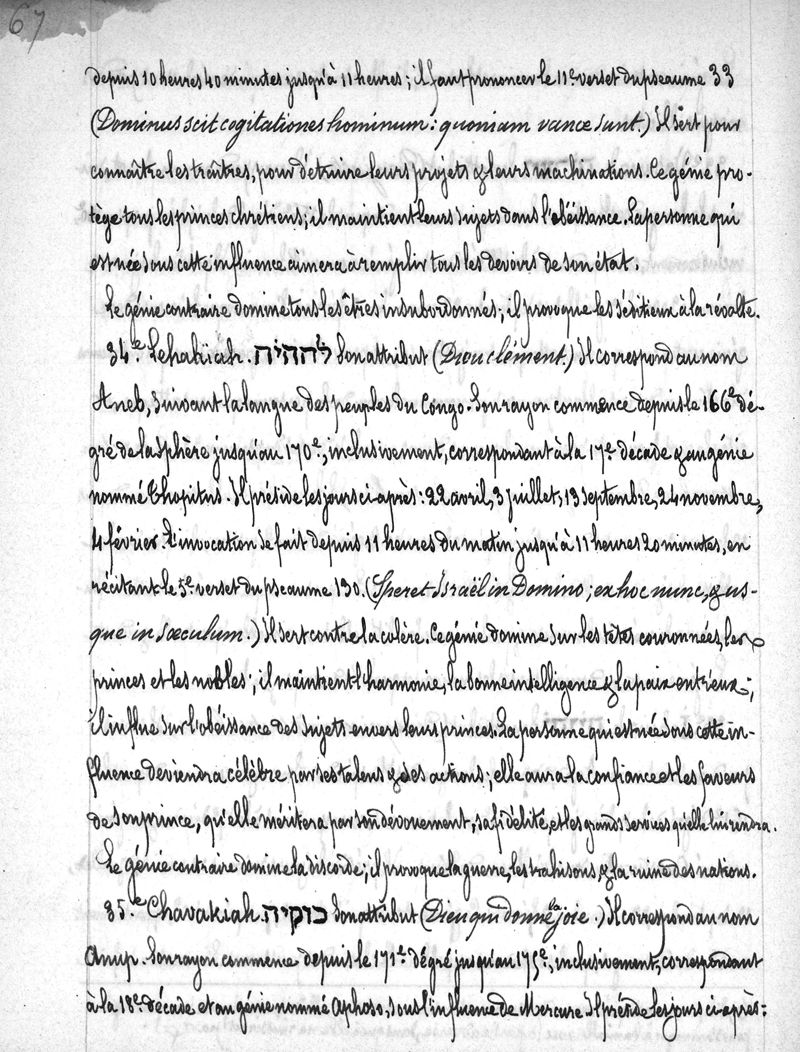 67
depuis 10 heures 40 minutes jusqu'à 11 heures ; il faut prononcer le 11e verset du pseaume 33
(Dominus scit cogitationes hominum : quoniam vanœ sunt.) Il sert pour
connaître les traîtres, pour détruire leurs projets & leurs machinations. Ce génie pro-
tège tous les princes chrétiens ; il maintient leurs sujets dans l'obéissance. La personne qui
est née sous cette influence aimera à remplir tous les devoirs de son état.
Le génie contraire domine tous les êtres insubordonnés ; il provoque les séditieux à la révolte.
34.e Lehahïah. להחיה Son attribut (Dieu clément.) Il correspond au nom
Aneb, suivant la langue des peuples du Congo. Son rayon commence depuis le 166e dé-
gré de la sphère jusqu'au 170e, inclusivement, correspondant à la 17e décade & au génie
nommé Thopitus. Il préside les jours ci-après : 22 avril, 3 juillet, 13 septembre, 24 novembre,
4 février. L'invocation se fait depuis 11 heures du matin jusqu'à 11 heures 20 minutes, en
récitant le 5e verset du pseaume 130. (Speret Israël in Domino ; ex hoc nunc, & us-
que in sœculum.) Il sert contre la colère. Ce génie domine sur les têtes couronnées, les
princes et les nobles ; il maintient l'harmonie, la bonne intelligence & la paix entr'eux ;
il influe sur l'obéissance des sujets envers leurs princes. La personne qui est née sous cette in-
fluence deviendra célèbre par ses talens & ses actions ; elle aura la confiance et les faveurs
de son prince, qu'elle méritera par son dévouement, sa fidélité, et les grands services qu'elle lui rendra.
Le génie contraire domine la discorde ; il provoque la guerre, les trahisons, & la ruine des nations.
35.e Chavakiah. כוקיה Son attribut (Dieu qui donne la joie.) Il correspond au nom
Anup. Son rayon commence depuis le 171e dégré jusqu'au 175e, inclusivement, correspondant
à la 18e décade et au génie nommé Aphoso, sous l'influence de Mercure Il préside les jours ci-après :